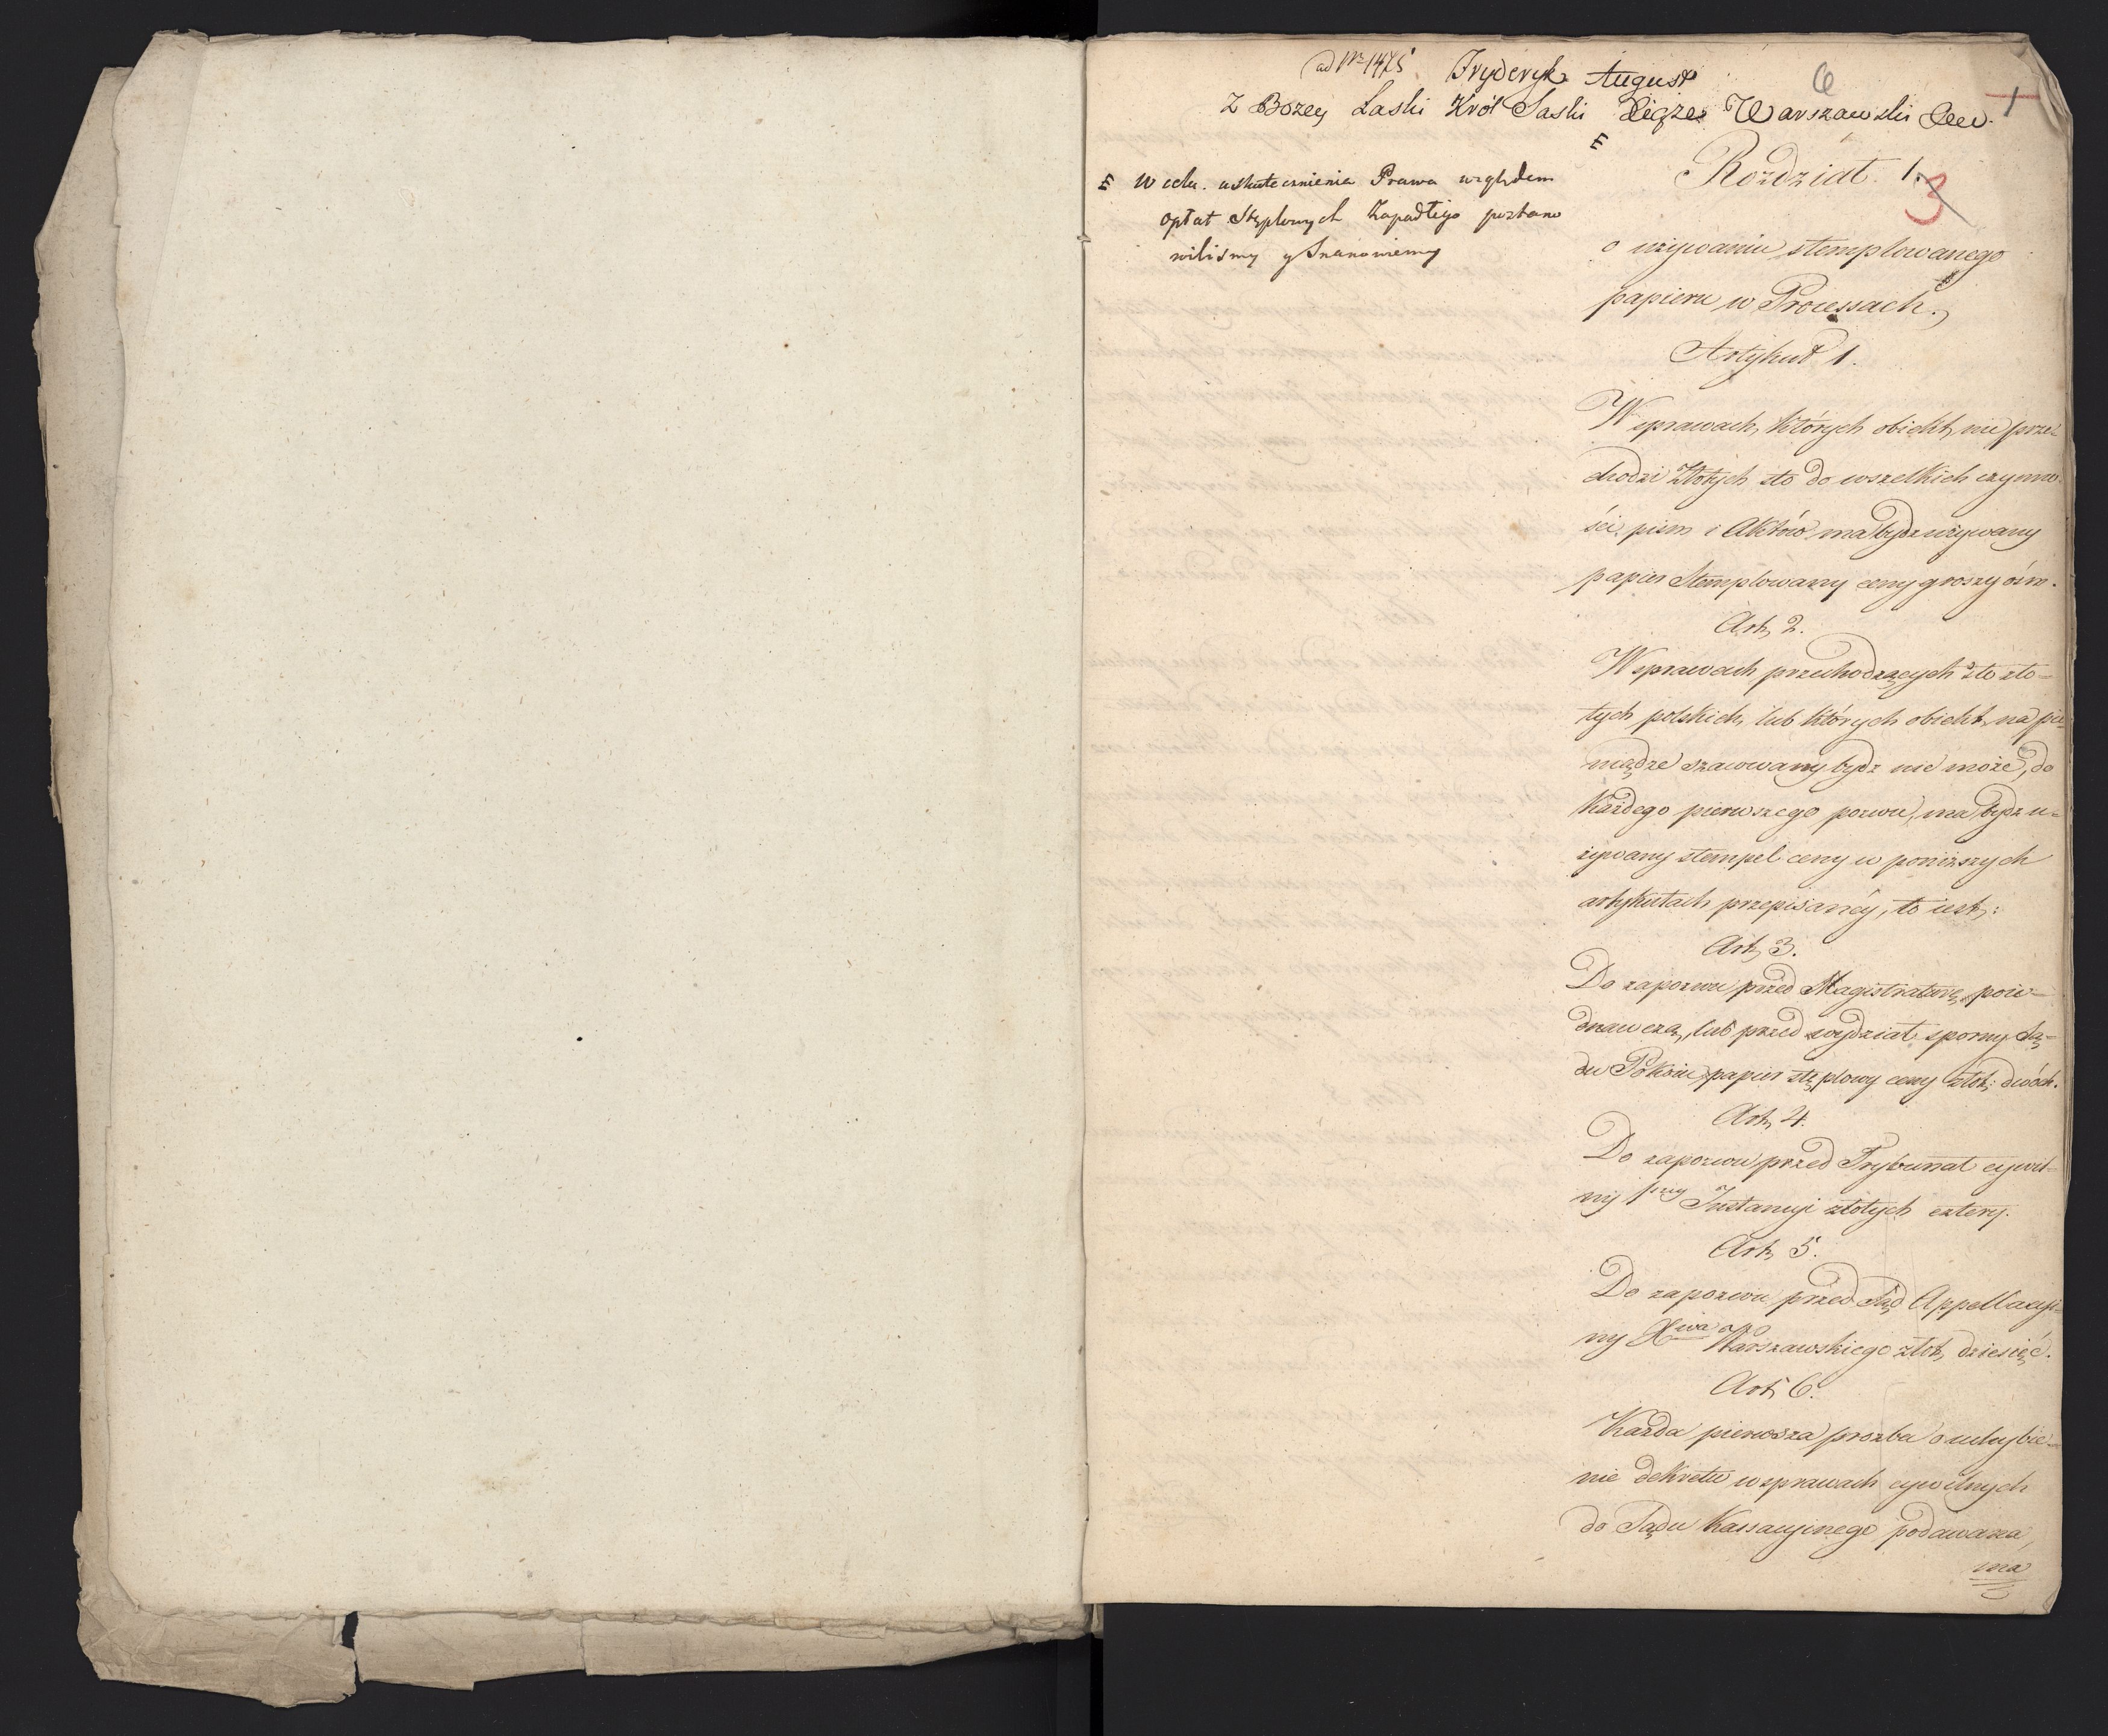 ad Nr 1475 Fryderyk August
Z Bozey Laski Król Saski Xiąże Warszawski &c.
6
1
3
E
E W celu uskutecznienia Prawa względem
opłat Stęplowych Zapadłego postano
wiliśmy y Stanowiemy
Rozdział 1.
o używaniu stemplowanego
papieru w Processach.
Artykuł 1.
W sprawach, których obiekt, nie prze-
chodzi Złotych sto do wszelkich czynno-
ści, pism i Aktów ma bydz używany
papier Stemplowany ceny groszy ośm.
Art, 2.
W sprawach przechodzących sto zło-
tych polskich, lub których obiekt, na pie-
niądze szacowany bydz nie może, do
Każdego pierwszego pozwu, ma bydz u-
żywany stempel ceny w poniższych
artykułach przepisanéy, to iest,:
Art, 3.
Do zapozwu przed Magistraturę poie-
dnawczą, lub przed wydział sporny Są-
du Pokoiu, papier stęplowy ceny złot,: dwóch.
Art, 4.
Do zapozwu przed Trybunał cywil-
ny 1wszy Instancyi złotych cztery.
Art, 5.
Do zapozwu przed Sąd Appellacyi-
ny Xwa Warszawskiego złot, dziesięć.
Art, 6.
Każda pierwsza prozba o uchybie-
nie dekretu w sprawach cywilnych
do Sądu Kassacyinego podawana,
ma